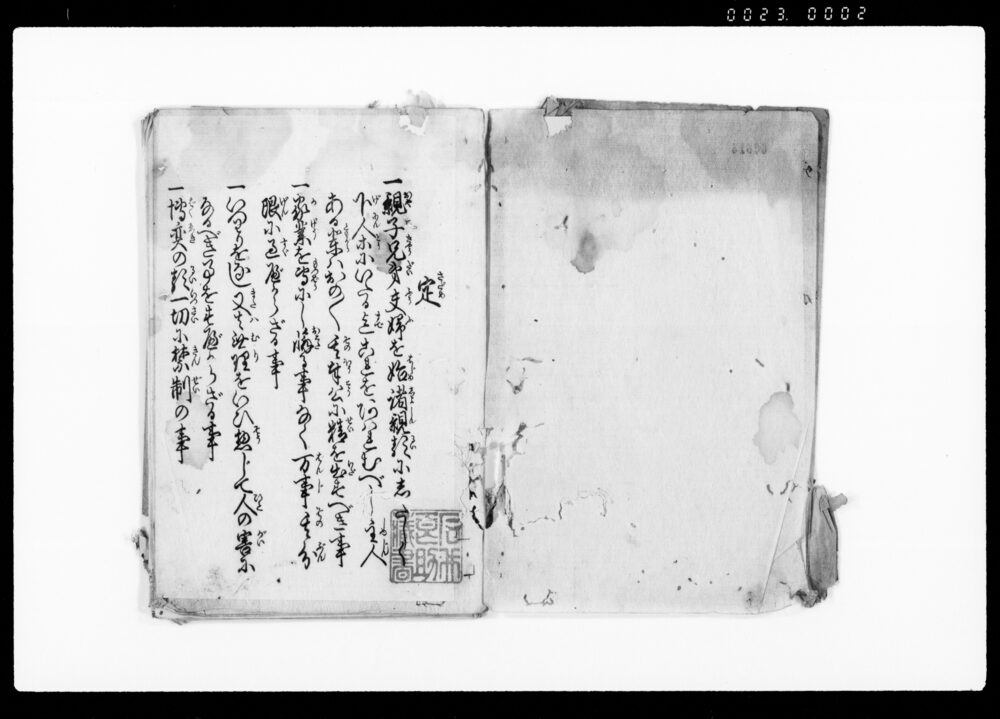 0023. 0002
定
一親子兄弟夫婦を始諸親類にしたしく
下人等にいたる迄これをあはれむべし主人
ある輩はおの〳〵其奉公に精を出すべき事
一家業を専にし懈る事なく万事其分
限に過べからざる事
一いつはりをなし又は無理をいひ惣じて人の害に
なるべき事をすべからざる事
一博奕の類一切に禁制の事